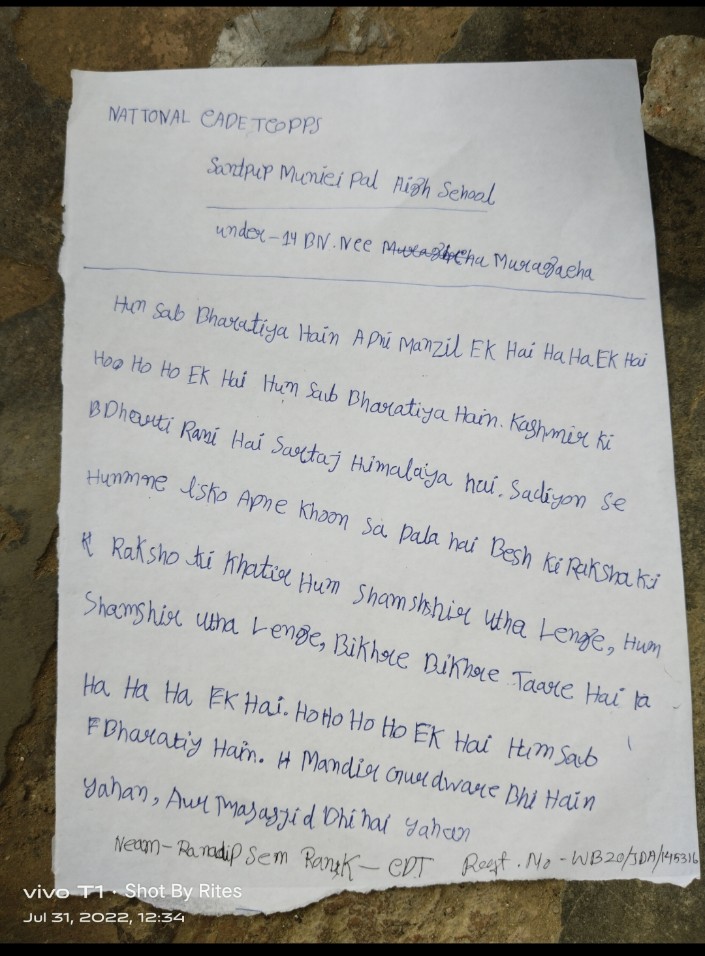 NATIONAL CADETCOPPS
Santpur Municipal High School
under-14 BN. Ncc Muragacha
Hum Sab Bharatiya Hain Apni Manzil EK Hai Ha Ha EK Hai
Hoo Ho Ho EK Hai Hum Sab Bharatiya Hain. Kashmir Ki
Dharti Rani Hai Sartaj Himalaiya hai. Sadiyon Se
Hummne Isko Apne Khoon Sa Pala hai Desh Ki Raksha Ki
Raksho Ki Khatir Hum Shamshshir Utha Lenge, Hum
Shamshir Utha Lenge, Bikhre Bikhre Taare Hai
Ha Ha Ha EK Hai. Ho Ho Ho Ho EK Hai Hum Sab
Bharatiy Hain. Mandir Gurdware Bhi Hain
Yahan, Aur Masasjid Bhi hai Yahan
Neam- Ranadip Sem Rank - CDT Regt. No - WB20/JDA/145316
vivo T1 · Shot By Rites
Jul 31, 2022, 12:34